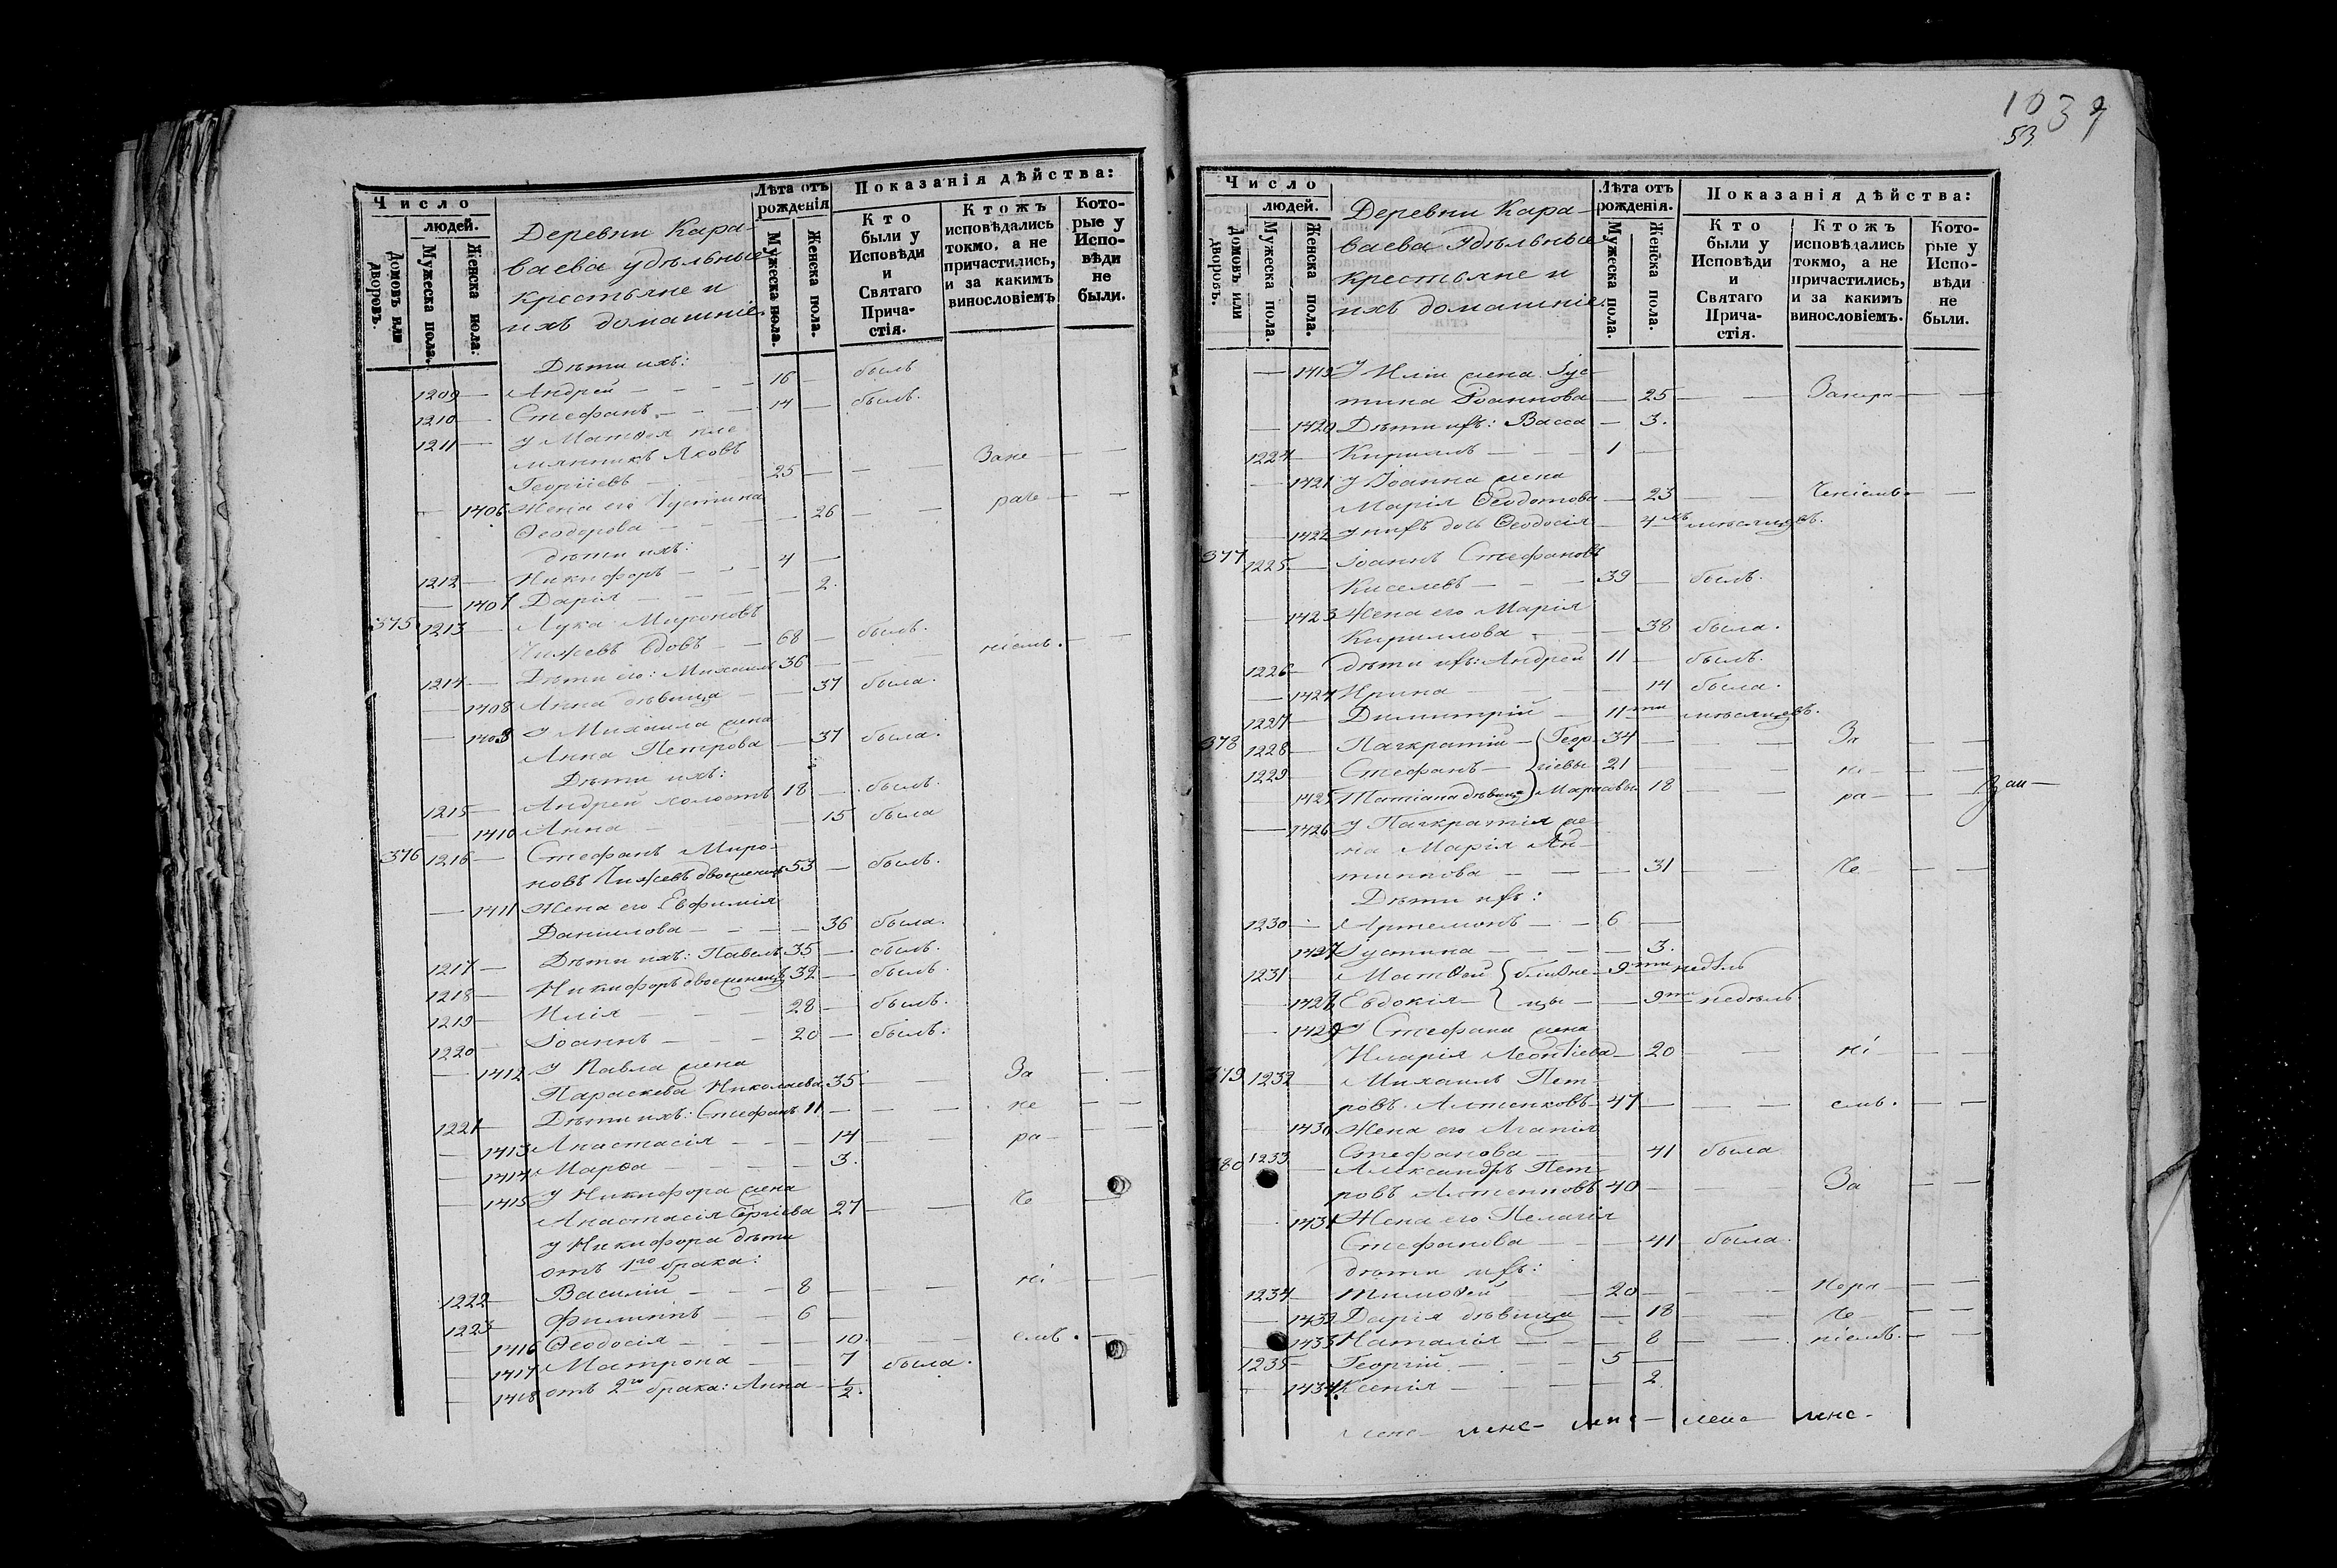 Число
людей.
Домовъ или дворовъ.
Мужеска пола.
Женска пола:
Деревни Кара-
ваева удѣльные
крестьяне и
ихъ домашніе.
Лѣта отъ
рожденія
Мужеска пола.
Женска пола.
Показанія дѣйства:
Кто
были у
Исповѣди
и
Святаго
Прича-
стія.
Ктожъ
исповѣдались
токмо, а не
причастились,
и за какимъ
винословіемъ.
Кото-
рые у
Испо-
вѣди
не
были.
Дѣти ихъ:
1209 — Андрей — — — 16 — былъ
1210 — Стефанъ — — 14 — былъ.
1211 — У Матѳея пле-
мянникъ Яковъ
Георгіевъ — 25 — — — Зане — —
— 1406 Жена его Іустина
Ѳеодорова — — 26 — — раче — —
дѣти ихъ:
1212 — Никифоръ — — 4 —
— 1407 Дарія — — — 2.
375 1213 — Лука Мироновъ
Чижевъ вдовъ — 68 — былъ.
1214 — Дѣти его: Михаилъ 36 — — ніемъ. — —
— 1408 Анна дѣвица — — 37 была.
— 1409 У Михаила жена
Анна Петрова — 37 была.
Дѣти ихъ:
1215 — Андрей холостъ 18 — былъ.
— 1410 Анна — — 15 была
376 1216 — Стефанъ Миро-
новъ Чижевъ двоеженецъ 53 — былъ.
— 1411 Жена его Евфимія
Даніилова — — — 36 была.
1217 — Дѣти ихъ: Павелъ 35 — былъ.
1218 — Никифоръ двоеженецъ 32 — былъ.
1219 — Илія — — — 28 — былъ.
1220 — Іоаннъ — — — 20 — былъ.
— 1412 У Павла жена
Параскева Николаева 35. — — За — —
1221 — Дѣти ихъ: Стефанъ 11 — — — не — —
— 1413 Анастасія — — — 14 — — ра — —
— 1414 Марѳа — — — 3.
— 1415 У Никифора жена
Анастасія Сергіева 27 — — че —
У Никифора дѣти
отъ 1го брака:
1222 — Василій — — 8 — — — ні — —
1223 — Филиппъ — — 6 —
— 1416 Ѳеодосія — — — 10. — — емъ. —
— 1417 Матрона — — 7 была.
— 1418 отъ 2го брака: Анна — 1/2.
1039
53.
Число
людей.
Домовъ или дворовъ.
Мужеска пола.
Женска пола.
Деревни Кара-
ваева Удѣльные
крестьяне и
ихъ домашніе.
Лѣта отъ
рожденія.
Мужеска пола.
Женска пола.
Показанія дѣйства:
Кто
были у
Исповѣди
и
Святаго
Прича-
стія.
Ктожъ
исповѣдались
токмо, а не
причастились,
и за какимъ
винословіемъ.
Кото-
рые у
Испо-
вѣди
не
были.
— 1419 У Иліи жена Іус-
тина Іоаннова — 25 — — Занера — —
— 1420 Дѣти ихъ: Васса — 3.
1224 — Кириллъ — — 1 —
— 1421 У Іоанна жена
Марія Ѳеодотова — 23 — — ченіемъ. — —
— 1422 У нихъ дочь Ѳеодосія — 4хъ мѣсяцевъ.
377 1225 — Іоаннъ Стефановъ
Киселевъ — — 39 — былъ.
— 1423 Жена его Марія
Кириллова — — 38 была.
1226 — дѣти ихъ: Андрей 11 — былъ.
— 1424 Ирина — — — 14 была.
1227 — Димитрій — 11ти мѣсяцевъ.
378 1228 — Панкратій — Геор- 34 — — — За — —
1229 — Стефанъ — гіевы 21 — — не — —
— 1425 Татіана дѣвица 18 — — ра — —
— 1426 У Панкратія же-
на Марія Ан-
типова — — — 31 — — че — —
Дѣти ихъ:
1230 — Артемонъ — — 6 —
1427 Іустина — — — 3.
1231 — Матѳей близне- 9ти недѣль
— 1428 Евдокія — цы — — 9ти недѣль
— 1429 У Стефана жена
Иларія Леонтіева — 20 — — ні — —
379 1232 — Михаилъ Пет-
ровъ 47 — — — емъ. — —
— 1430 Жена его Агапія
Стефанова — — 41 была
380 1233 — Александръ Пет-
ровъ 40 — — — За — —
— 1431 Жена его Пелагія
Стефанова — — 41 была.
дѣти ихъ:
1234 — Тимоѳей — 20 — — — нера — —
— 1432 Дарія дѣвица — 18 — — че — —
1433 Наталія — — 8 — — ніемъ. — —
1235 — Георгій — — 5 —
— 1434 Ксенія — — — 2.